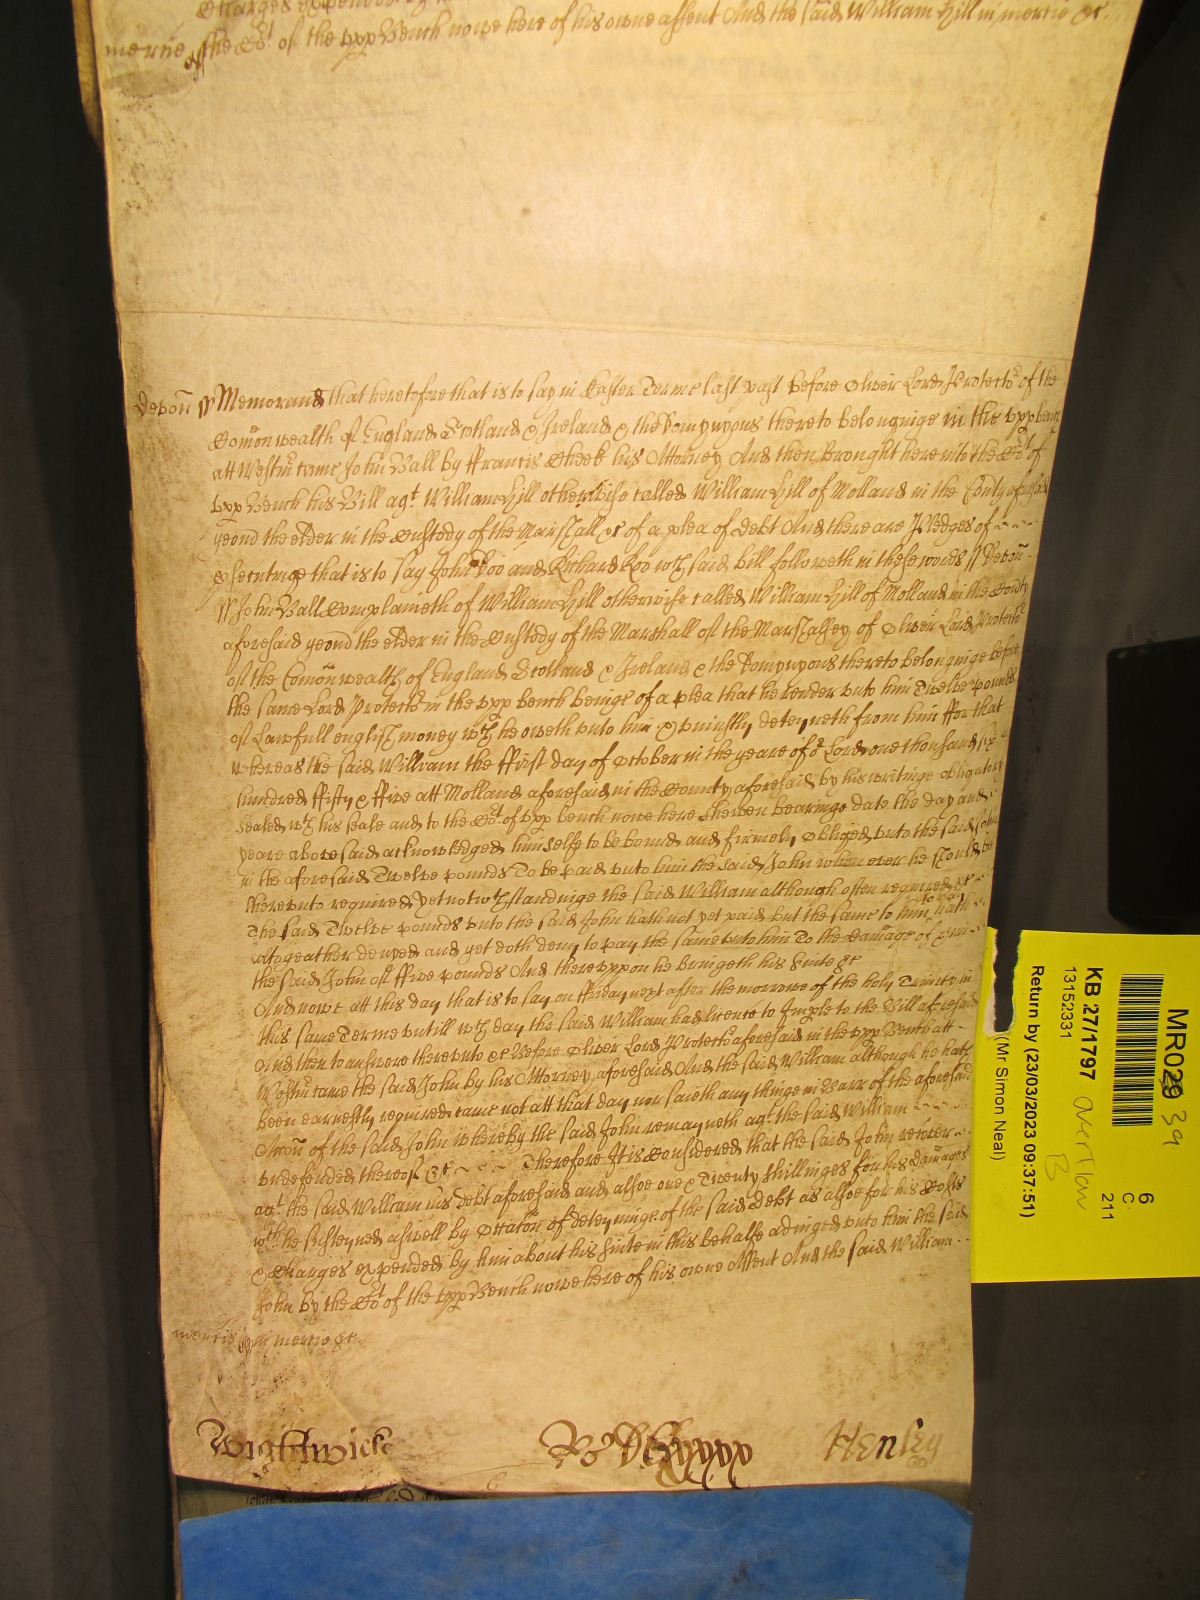 Charges expended by
mercie & the Cot of the upp Bench nowe here of his owne assent And the said William Hill in mercie &c
Devon ss Memorand that heretofore that is to say in Easter Terme last past before Oliver Lord Protector of the
Comonwealth of England Scotland & Ireland & the Domynyons thereto belonginge in the upp bench
att Westmr came John Ball by Francis Cheeke his Attorney And then brought here into the Cot of
upp Bench his Bill agt William Hill otherwise called William Hill of Molland in the County aforesaid
yeomd the elder in the Custody of the Marshall &c of a plea of debt And there are Pledges of
prosecutinge that is to say John Doo and Richard Roo wch said bill followeth in these words ss Devon
ss John Ball Complaineth of William Hill otherwise called William Hill of Molland in the County
aforesaid yeomd the elder in the Custody of the Marshall of the Marshalsey of Oliver Lord Protector
of the Comonwealth of England Scotland & Ireland & the Domynyons thereto belonginge before
the same Lord Protector in the upp bench beinge of a plea that he render unto him Twelve pounds
of Lawfull english money wch he oweth unto him & uniustly deteyneth from him ffor that
whereas the said William the ffirst day of October in the yeare of or Lord one thousand six
hundred ffifty & ffive att Molland aforesaid in the County aforesaid by his writinge obligatory
sealed wth his seale and to the Cot of upp bench nowe here shewen bearinge date the day and
yeare abovesaid acknowledged himselfe to be bound and firmely obliged unto the said John
in the aforesaid Twelve pounds To be paid unto him the said John when ever he should be
thereunto required yet notwthstandinge the said William although often required &c
The said Twelve pounds unto the said John hath not yet paid but the same to him to pay hath
altogeather denyed and yet doth deny to pay the same unto him To the damage of him
the said John of ffive pounds And thereuppon he bringeth his suite &c
And nowe att this day that is to say on ffriday next after the morrowe of the holy Trinity in
this same Terme untill wch day the said William had licence to Imple to the Bill aforesaid
And then to answere thereunto &c Before Oliver Lord Protector aforesaid in the upp Bench att
Westmr came the said John by his Attorney aforesaid And the said William although he hath
been earnestly required came not att that day nor saieth any thinge in Barr of the aforesaid
Accon of the said John whereby the said John remayneth agt the said William
undefended thereof &c Therefore It is Considered that the said John recover
agt the said William his Debt aforesaid and alsoe one & Twenty shillinges for his damages
wch he susteyned aswell by occacon of deteyninge of the said Debt as alsoe for his Costs
& Charges expended by him about his suite in this behalfe adiudged unto him the said
John by the Cot of the upp Bench nowe here of his owne Assent And the said William
mercie in mercie &c
Wightwicke Henley
MR029 39
6
C
211
KB 27/1797
13152331
Return by (23/03/2023 09:37:51)
(Mr Simon Neal)